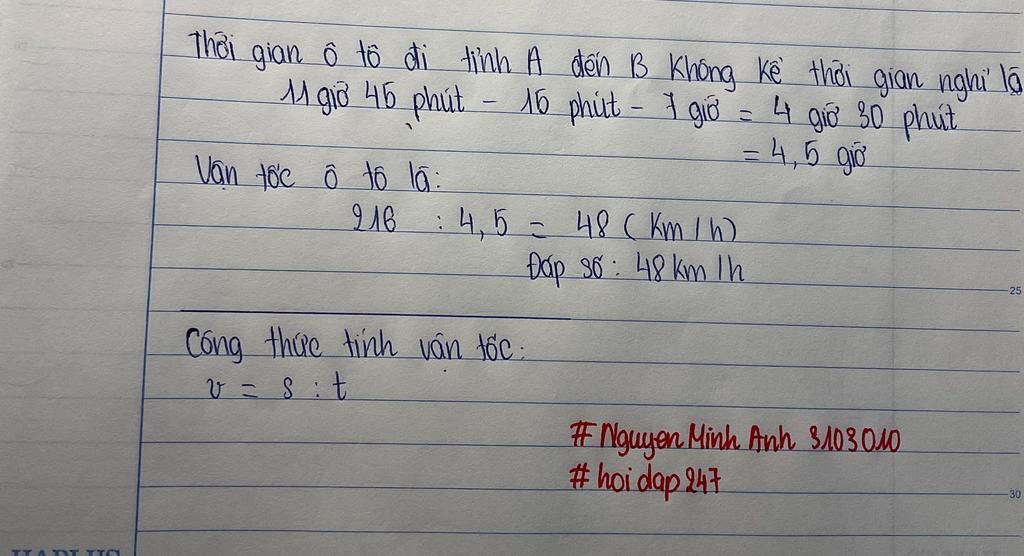 Thời gian ô tô đi tỉnh A đến B không kể thời gian nghỉ là
11 giờ 45 phút - 15 phút - 7 giờ = 4 giờ 30 phút
= 4,5 giờ
Vận tốc ô tô là:
216 : 4,5 = 48 (km/h)
Đáp số: 48 km/h
25
Công thức tính vận tốc:
v = s : t
#NguyenMinhAnh 3103010
#hoidap247
30